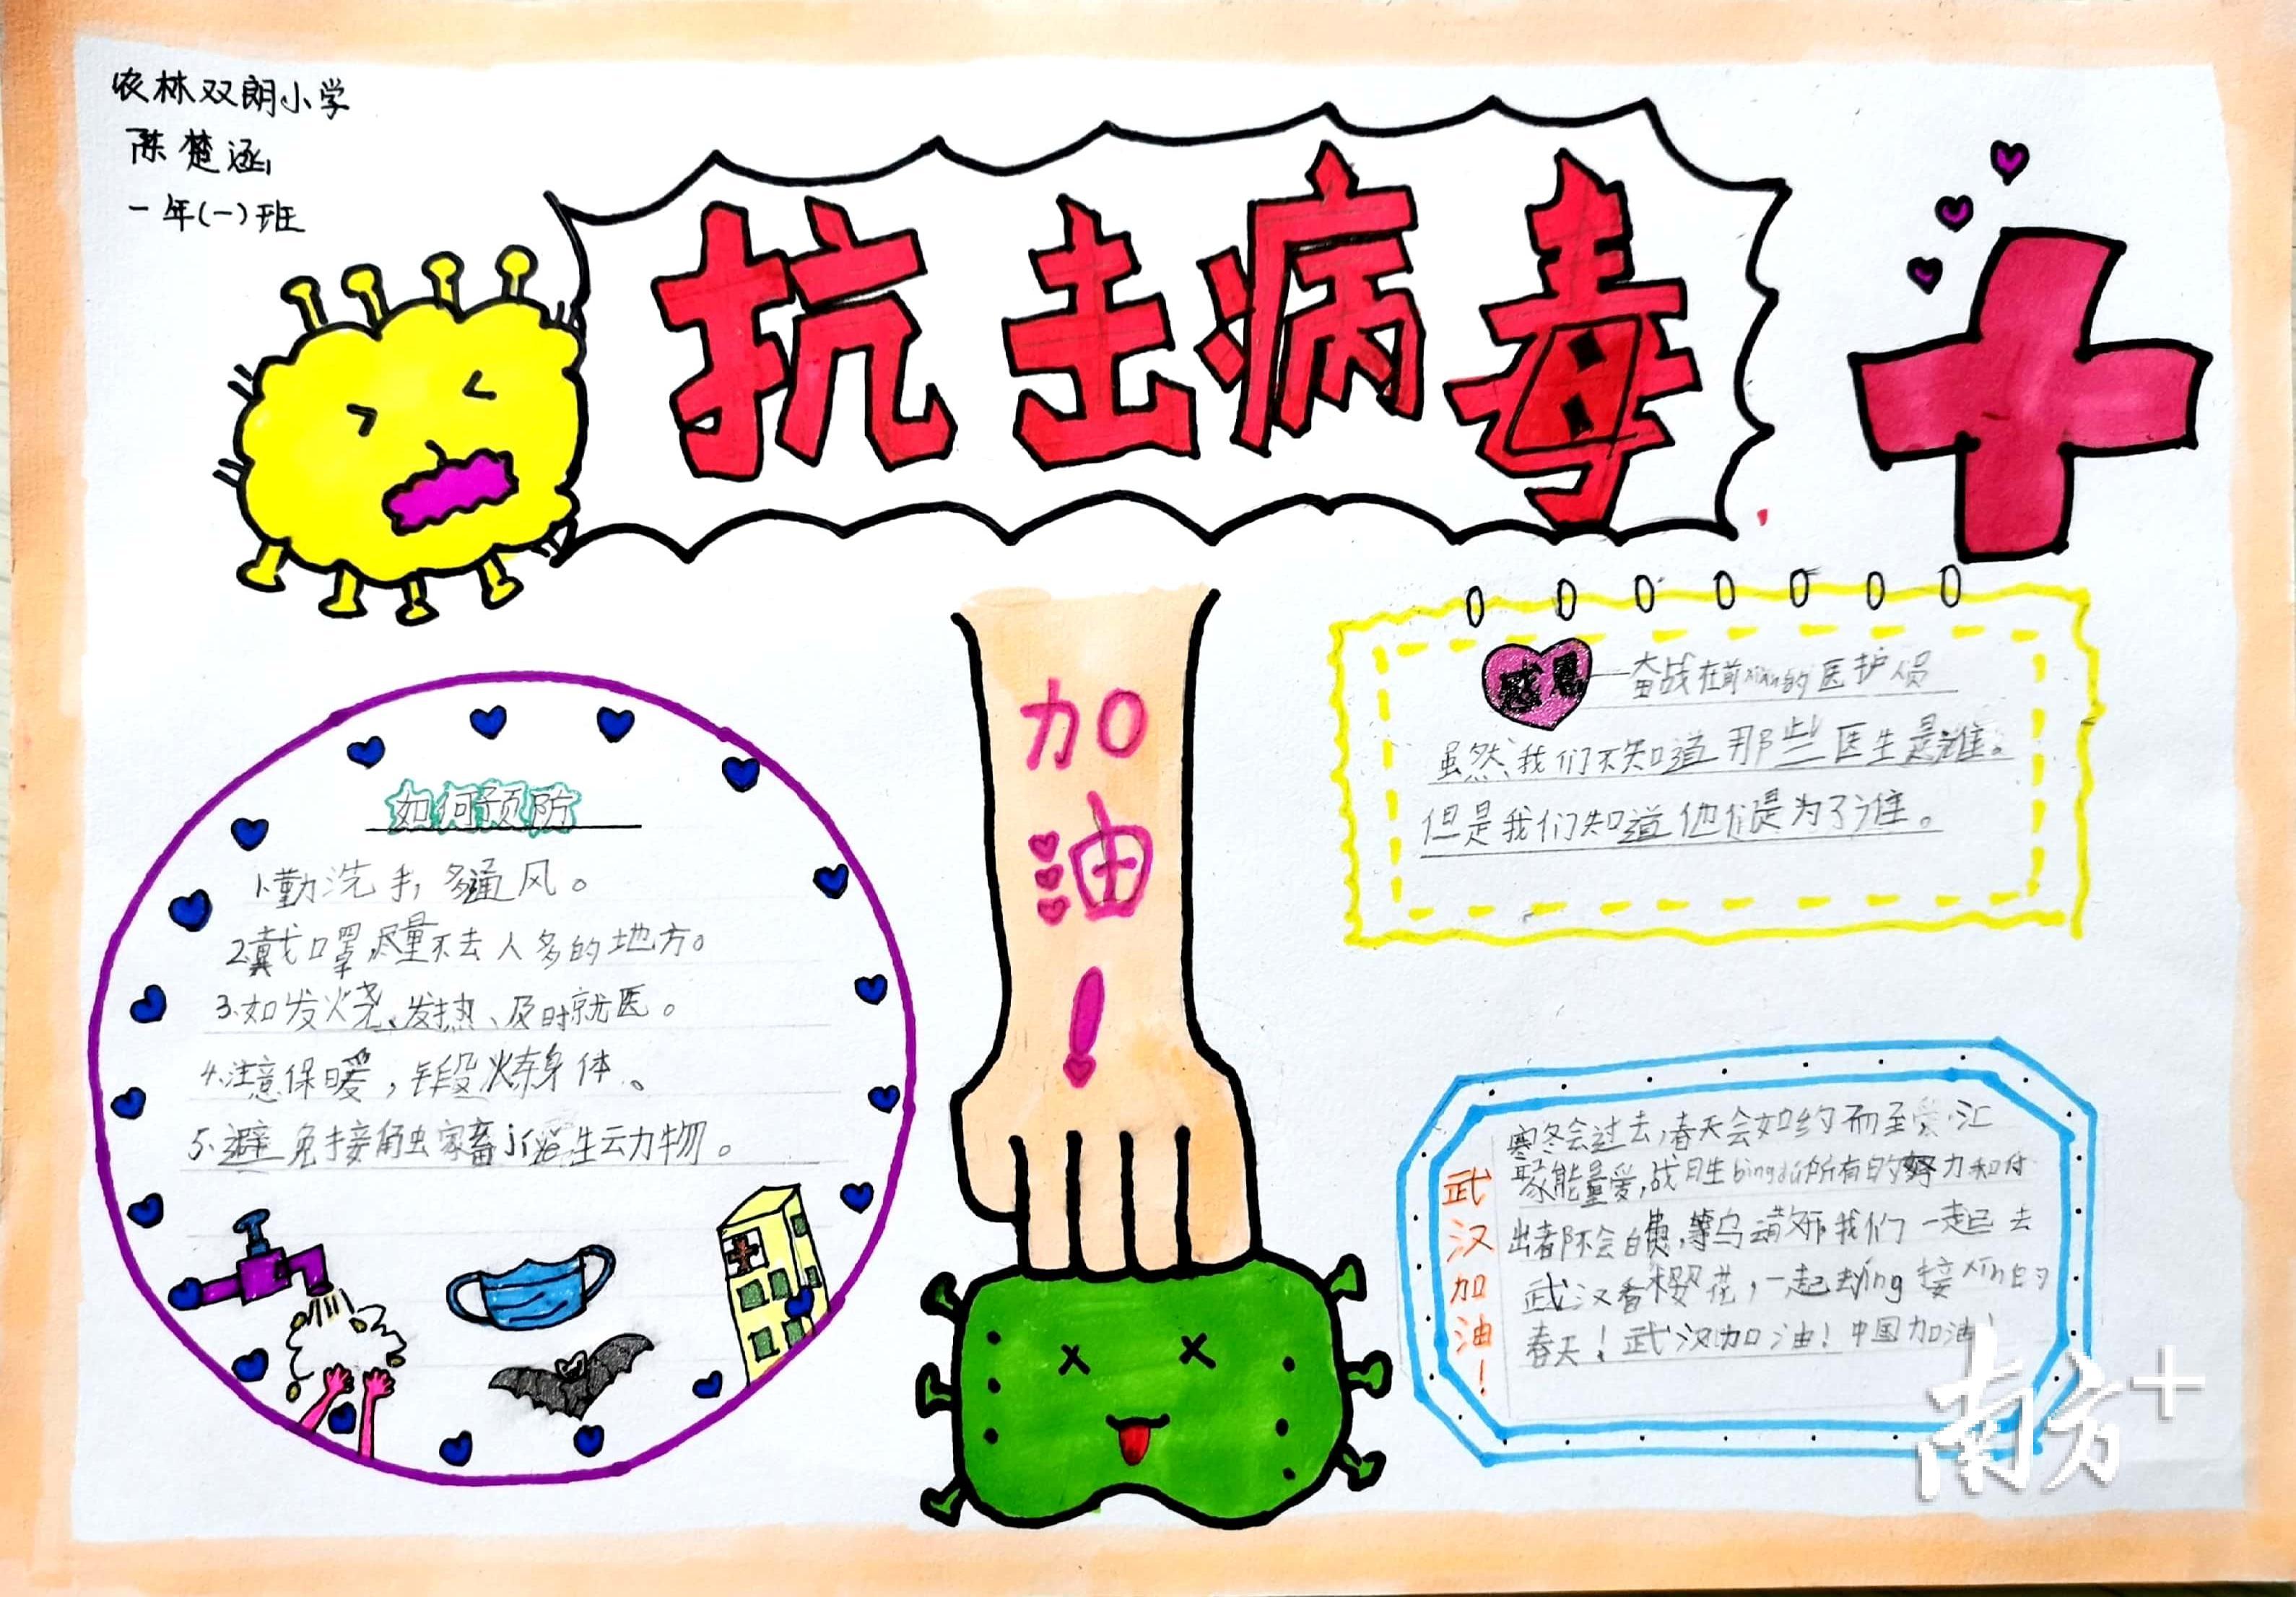 农林双朗小学
陈楚涵
一年(一)班
抗击病毒
感恩——奋战在前xiàn的医护人员
虽然我们不知道那些医生是谁。
但是我们知道他们是为了谁。
加油!
如何预防
1.勤洗手,多通风。
2.戴口罩,尽量不去人多的地方。
3.如发烧、发热、及时就医。
4.注意保暖,段炼身体。
5.避免接触家畜jí野生动物。
武汉加油!
寒冬会过去,春天会如约而至 汇
聚能量爱,战胜bìngdú所有的努力和付
出都不会白费,等 我们一起去
武汉看樱花,一起去yíng接xīn的
春天!武汉加油!中国加油!
南方+